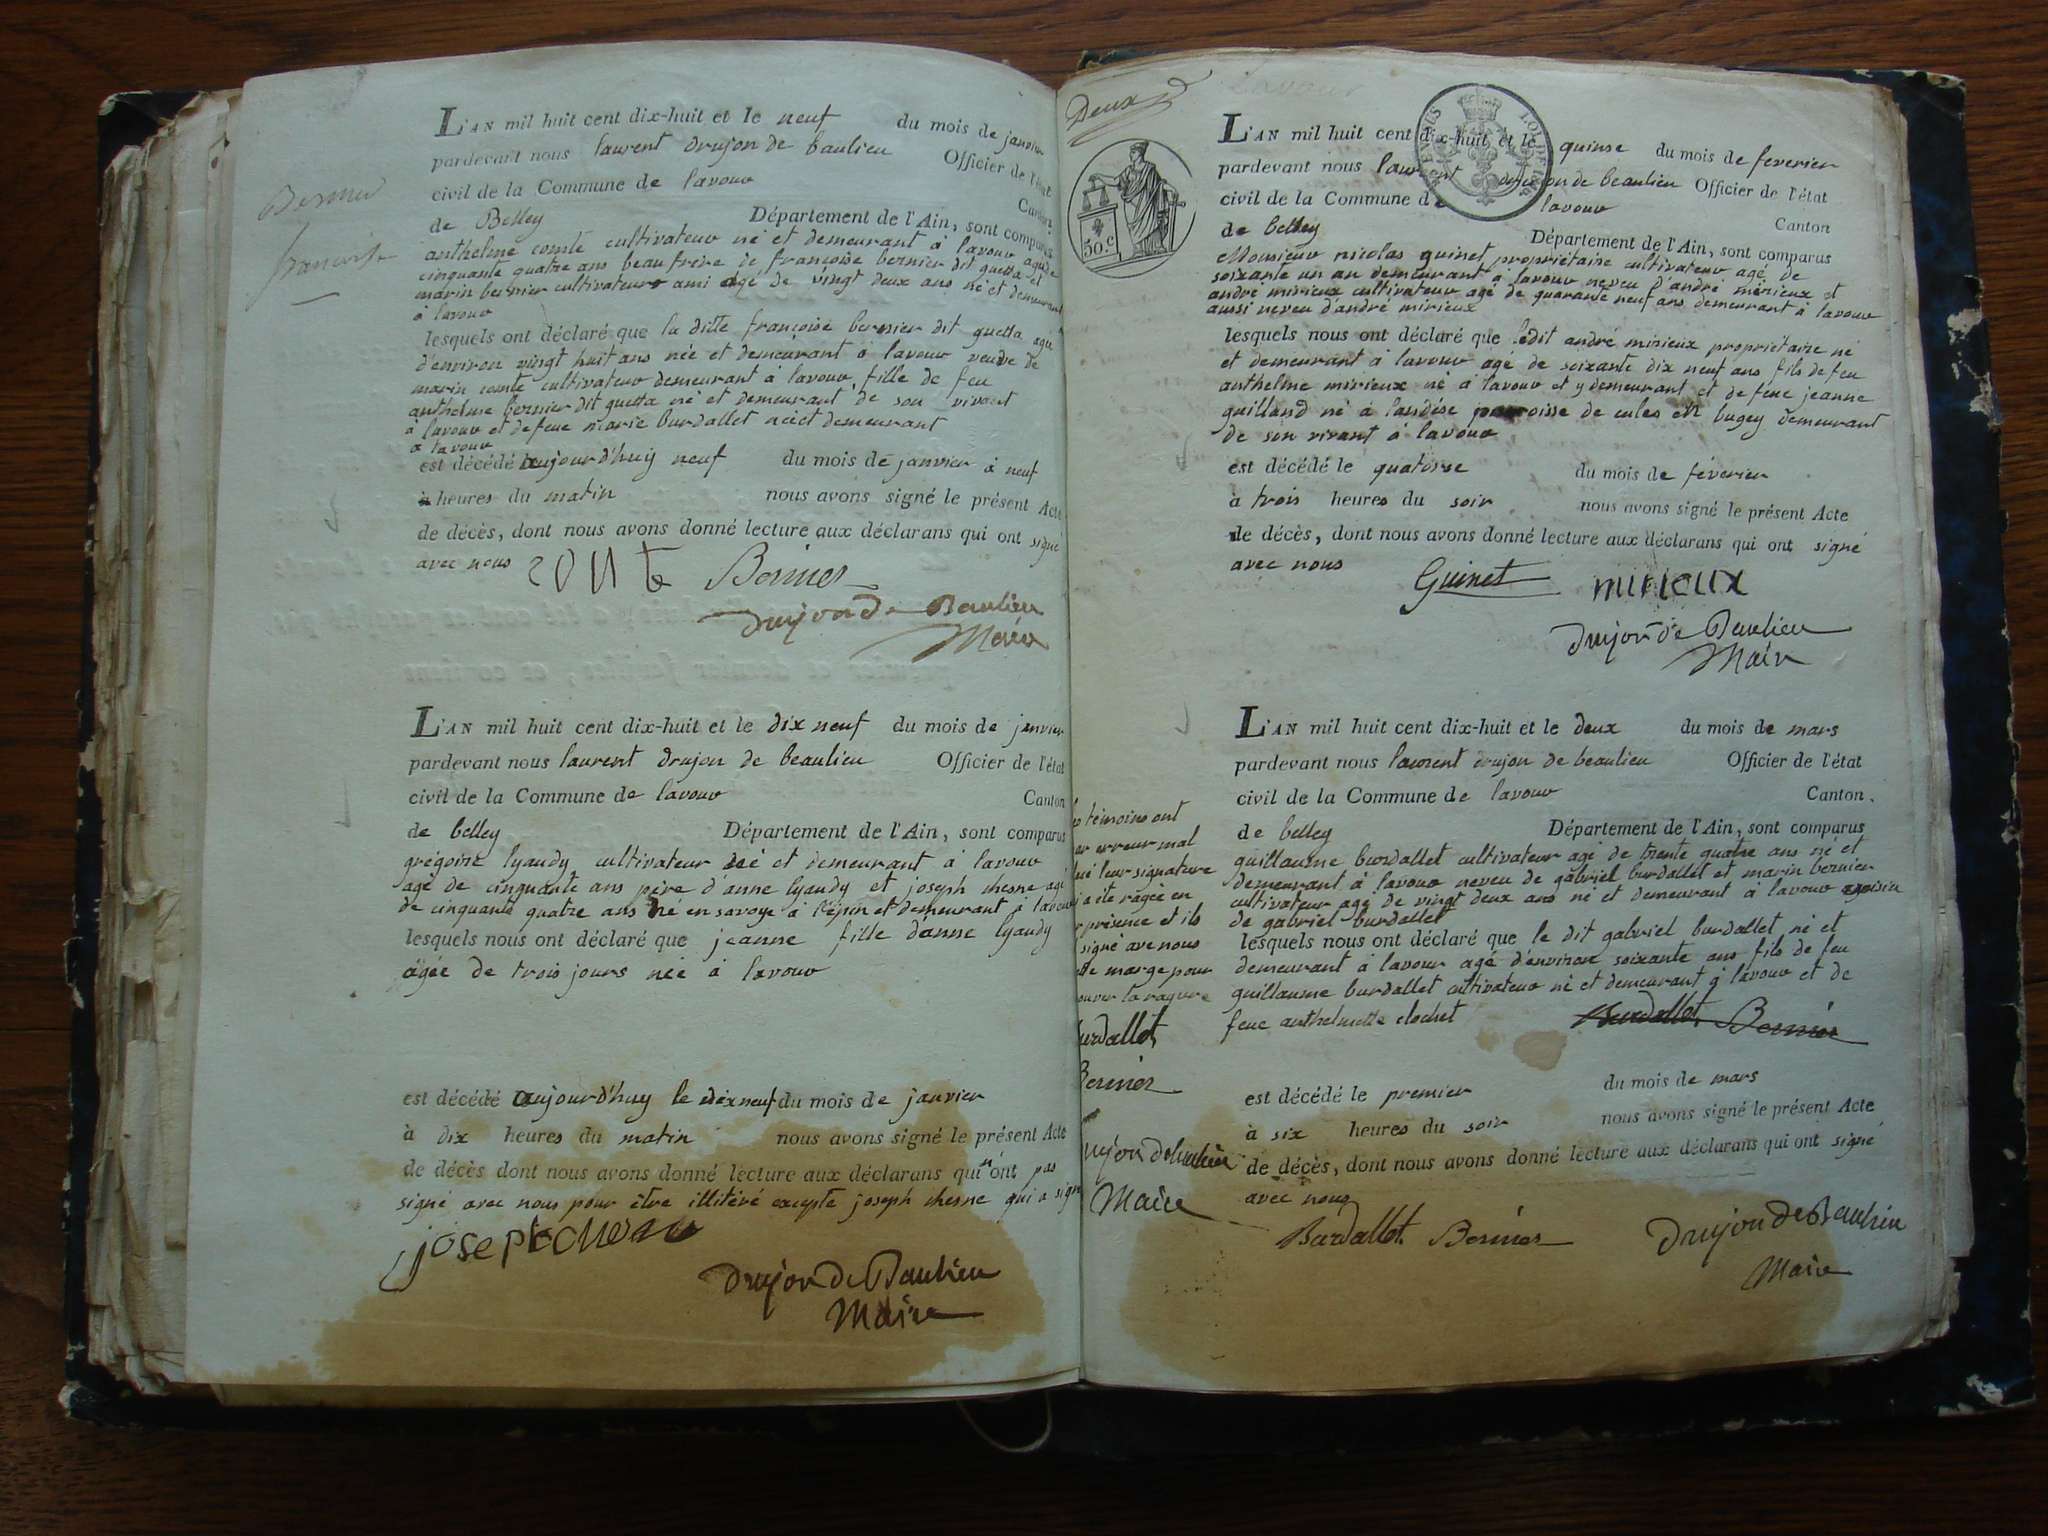 Bernier
françoise
L'AN mil huit cent dix-huit et le neuf du mois de janvier
pardevant nous laurent drujon de baulieu Officier de l'état
civil de la Commune de lavour Canton
de Belley Département de l'Ain, sont comparus
anthelme comte cultivateur né et demeurant à lavour agé de
cinquante quatre ans beaufrere de françoise bernier dit guetta et
marin bernier cultivateur ami agé de vingt deux ans né et demeurant
à lavour
lesquels ont déclaré que la ditte françoise bernier dit guetta agée
d'environ vingt huit ans née et demeurant à lavour veuve de
marin comte cultivateur demeurant à lavour, fille de feu
anthelme bernier dit guetta né et demeurant de son vivant
à lavour et defeue marie burdallet néeet demeurant
a lavour
est décédé aujourd'huy neuf du mois de janvier à neuf
à heures du matin nous avons signé le présent Acte
de décès, dont nous avons donné lecture aux déclarans qui ont signé
avec nous comte Bernier
Drujon De Baulieu
Maire
L'AN mil huit cent dix-huit et le dix neuf du mois de janvier
pardevant nous laurent drujon de beaulieu Officier de l'état
civil de la Commune de lavour Canton
de belley Département de l'Ain, sont comparus
grégoire lyaudy cultivateur né et demeurant à lavour
agé de cinquante ans père d'anne lyaudy et joseph chesne agé
de cinquante quatre ans né en savoye à l'épin et demeurant à lavour
lesquels nous ont déclaré que jeanne fille d'anne lyaudy
agée de trois jours née à lavour
est décédé aujourd'huy le dixneuf du mois de janvier
à dix heures du matin nous avons signé le présent Acte
de décès dont nous avons donné lecture aux déclarans qui n'ont pas
signé avec nous pour être illitéré excepté joseph chesne qui a signé
joseph chene
Drujon De Baulieu
Maire
Deux
Lavour
50.c
L'AN mil huit cent dix-huit et le quinse du mois de feverier
pardevant nous laurent drujon de beaulieu Officier de l'état
civil de la Commune de lavour Canton
de belley Département de l'Ain, sont comparus
Monsieur nicolas guinet propriétaire cultivateur agé de
soixante un an demeurant à lavour neveu d'andré mirieux et
andré mirieux cultivateur agé de quarante neuf ans demeurant à lavour
aussi neveu d'andré mirieux
lesquels nous ont déclaré que ledit andré mirieux propriétaire né
et demeurant à lavour agé de soixante dix neuf ans fils de feu
anthelme mirieux né à lavour et y demeurant et de feue jeanne
guilland né à landése parroisse de culos en bugey demeurant
de son vivant à lavour
est décédé le quatorse du mois de féverier
à trois heures du soir nous avons signé le présent Acte
de décès, dont nous avons donné lecture aux déclarans qui ont signé
avec nous Guinet mirieux
Drujon de Baulieu
Maire
L'AN mil huit cent dix-huit et le deux du mois de mars
pardevant nous laurent drujon de beaulieu Officier de l'état
civil de la Commune de lavour Canton
de belley Département de l'Ain, sont comparus
guillaume burdallet cultivateur agé de trente quatre ans né et
demeurant à lavour neveu de gabriel burdallet et marin bernier
cultivateur agé de vingt deux ans né et demeurant à lavour voisin
de gabriel burdallet
lesquels nous ont déclaré que le dit gabriel burdallet né et
demeurant à lavour agé d'environ soixante ans fils de feu
guillaume burdallet cultivateur né et demeurant à lavour et de
feue anthelmette clochet Burdallet Bernier
est décédé le premier du mois de mars
à six heures du soir nous avons signé le présent Acte
de décès, dont nous avons donné lecture aux déclarans qui ont signé
avec nous
Burdallet Bernier Drujon de Baulieu
Maire
témoins ont
erreur mal
leur signature
a été ragée en
présence et ils
signé avec nous
marge pour
la ragure
Burdallet
Bernier
Drujon deBaulieu
Maire